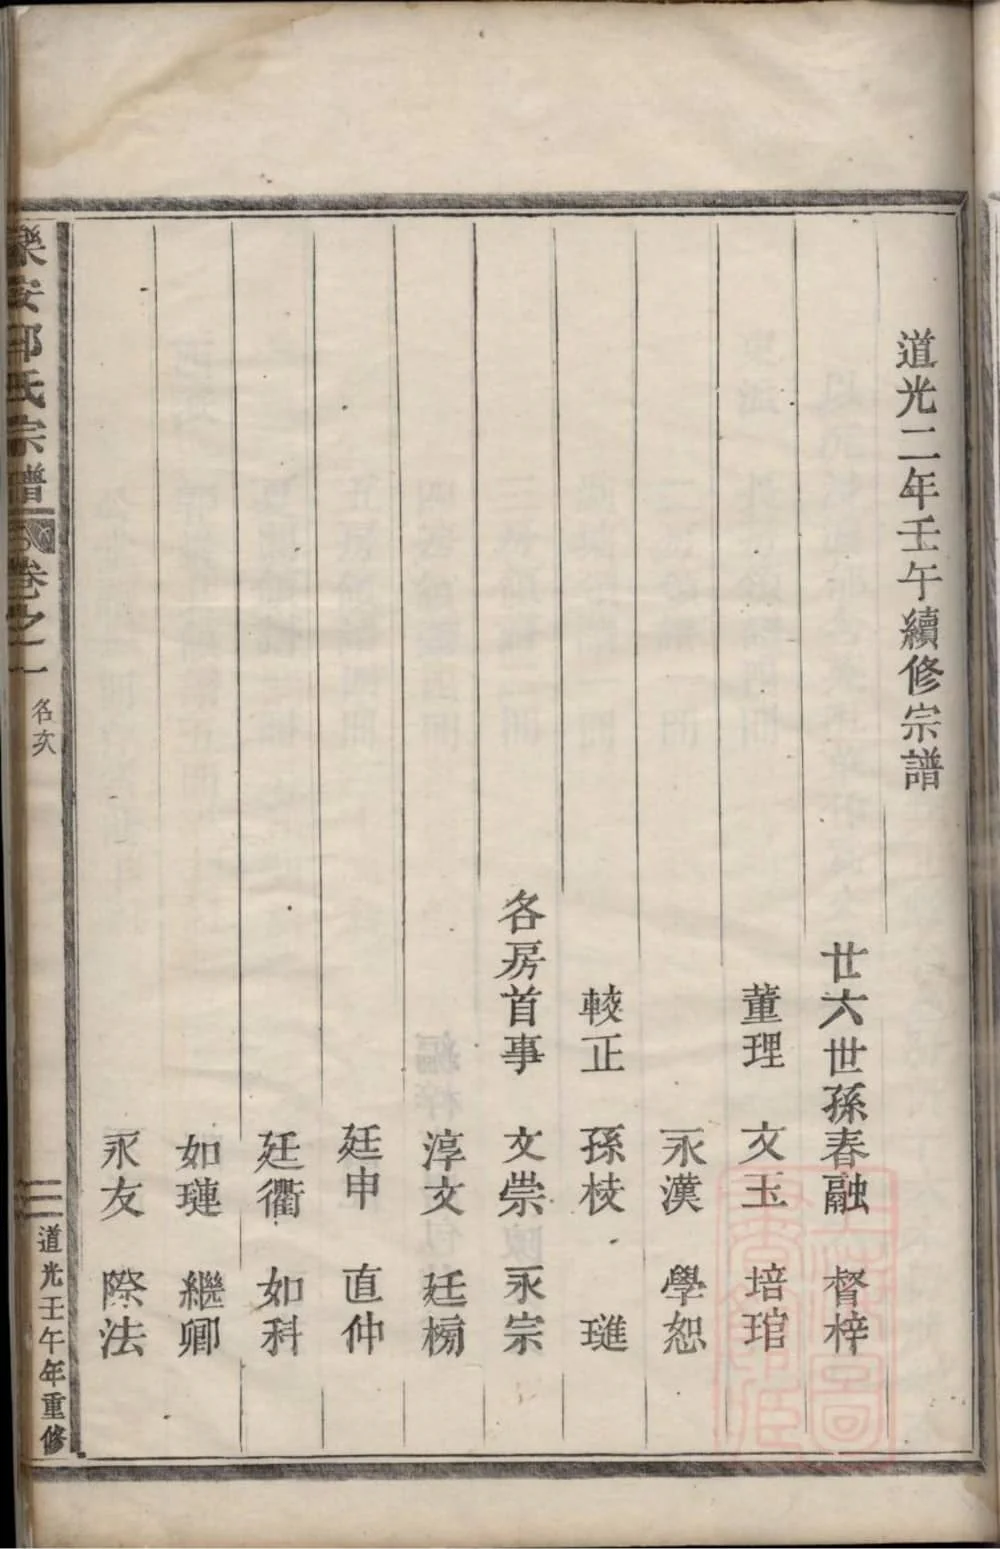 道光二年壬午續修宗譜
廿六世孫春融 督梓
董理 文玉 培琯
永漢 學恕
較正 孫枝 璡
各房首事 文崇 永宗
淳文 廷楠
廷申 直仲
廷衢 如科
如璉 繼卿
永友 際法
樂安邵氏宗譜 卷之一 名次 三 道光壬午年重修